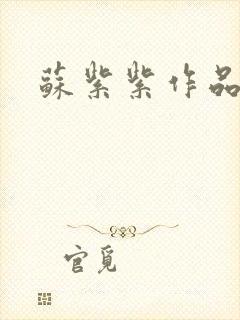 蘇紫紫作品
官覓